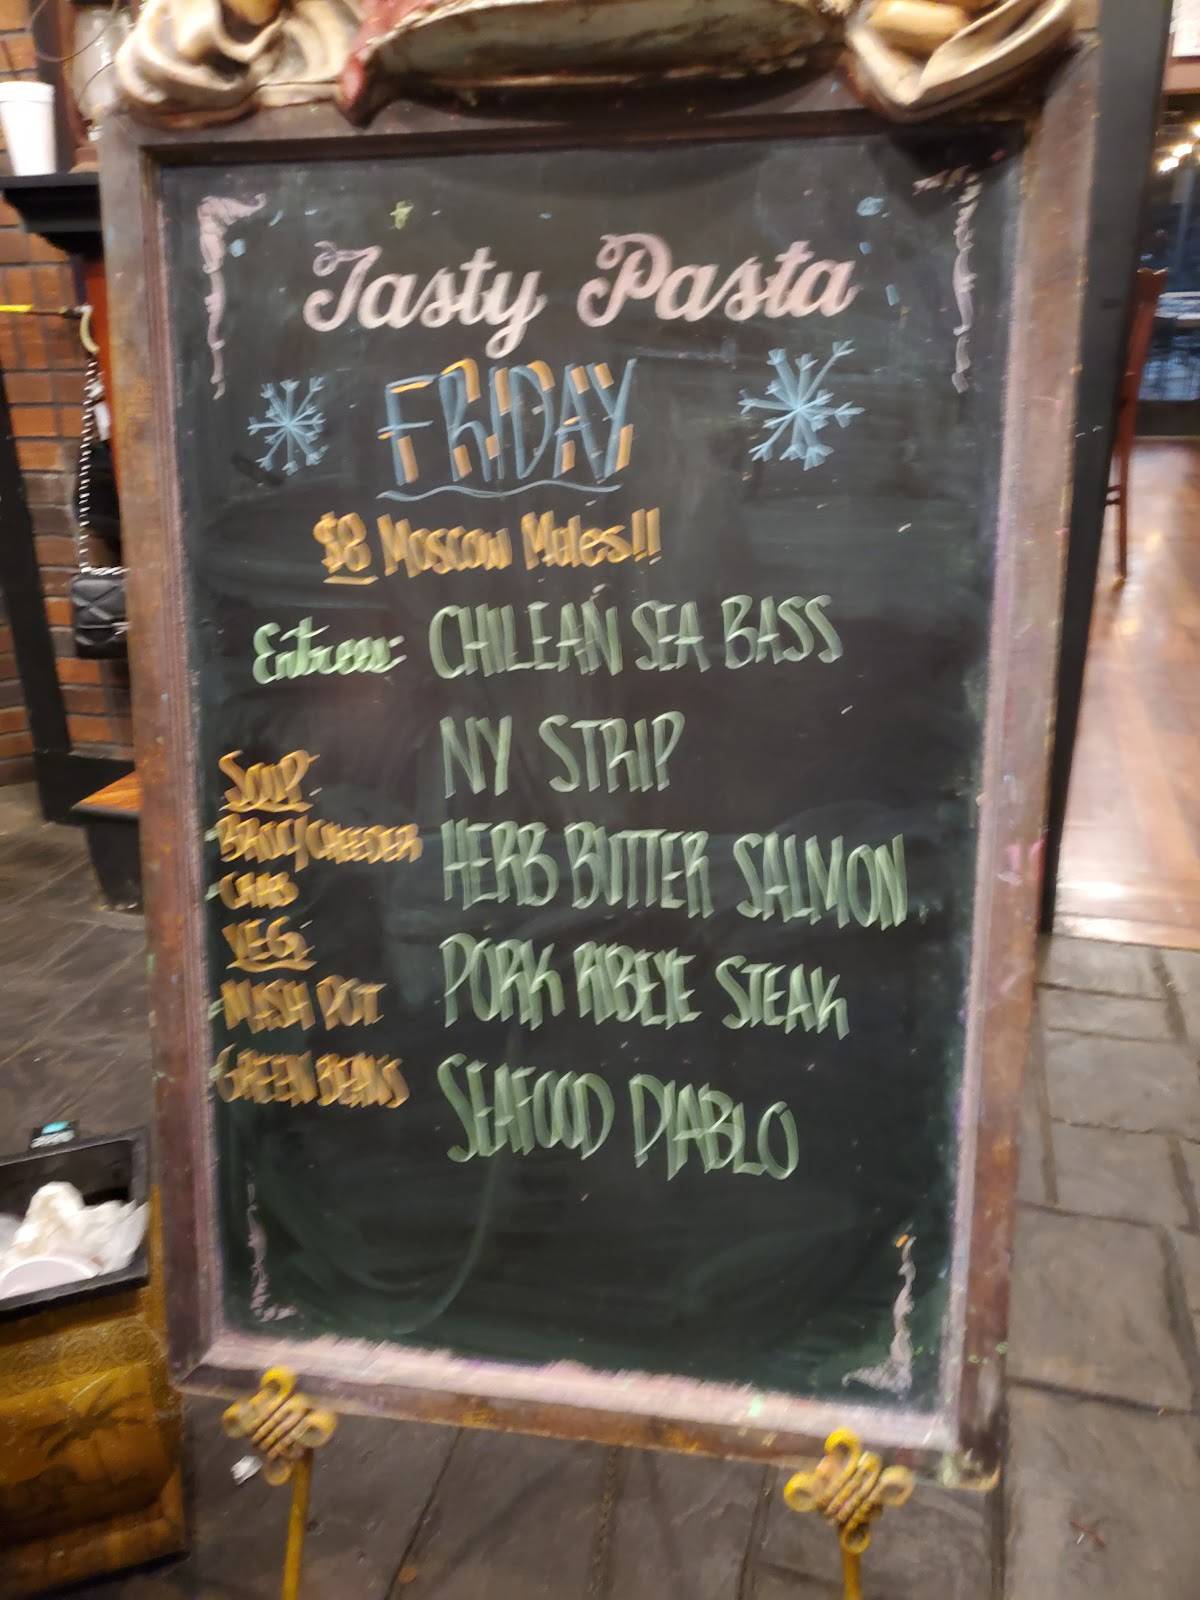 Tasty Pasta
FRIDAY
$8 Moscow Mules!!
Entrees: CHILEAN SEA BASS
NY STRIP
HERB BUTTER SALMON
PORK RIBEYE STEAK
SEAFOOD DIABLO
SOUP
- BROC/CHEEDER
- CRAB
VEG
- MASH POT
- GREEN BEANS